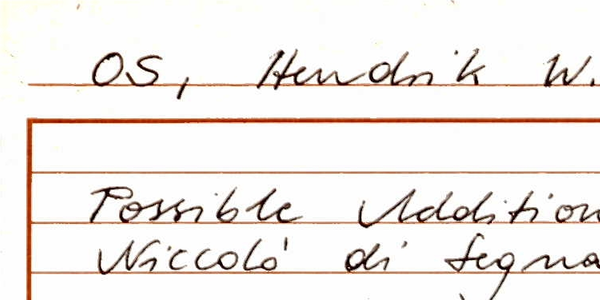 OS, Hendrik W.
Possible Addition
Niccolò di Segna